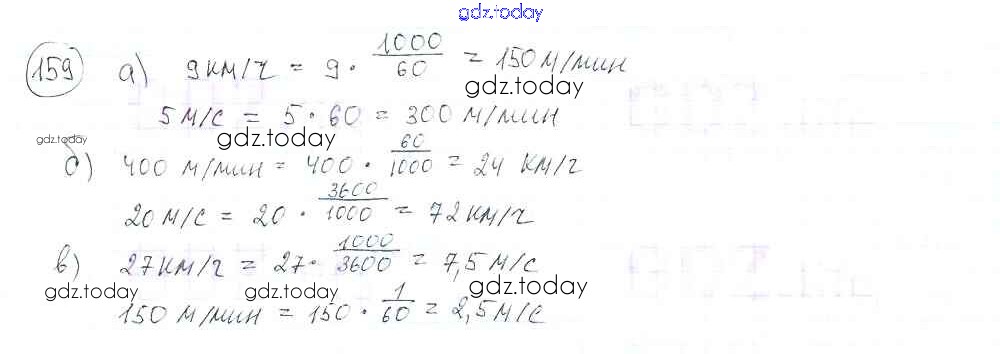 gdz.today
159 а) 9км/ч = 9 · 1000/60 = 150 м/мин
gdz.today
5 м/с = 5 · 60 = 300 м/мин
gdz.today
gdz.today
б) 400 м/мин = 400 · 60/1000 = 24 км/ч
20 м/с = 20 · 3600/1000 = 72 км/ч
в) 27 км/ч = 27 · 1000/3600 = 7,5 м/с
gdz.today gdz.today gdz.today
150 м/мин = 150 · 1/60 = 2,5 м/с